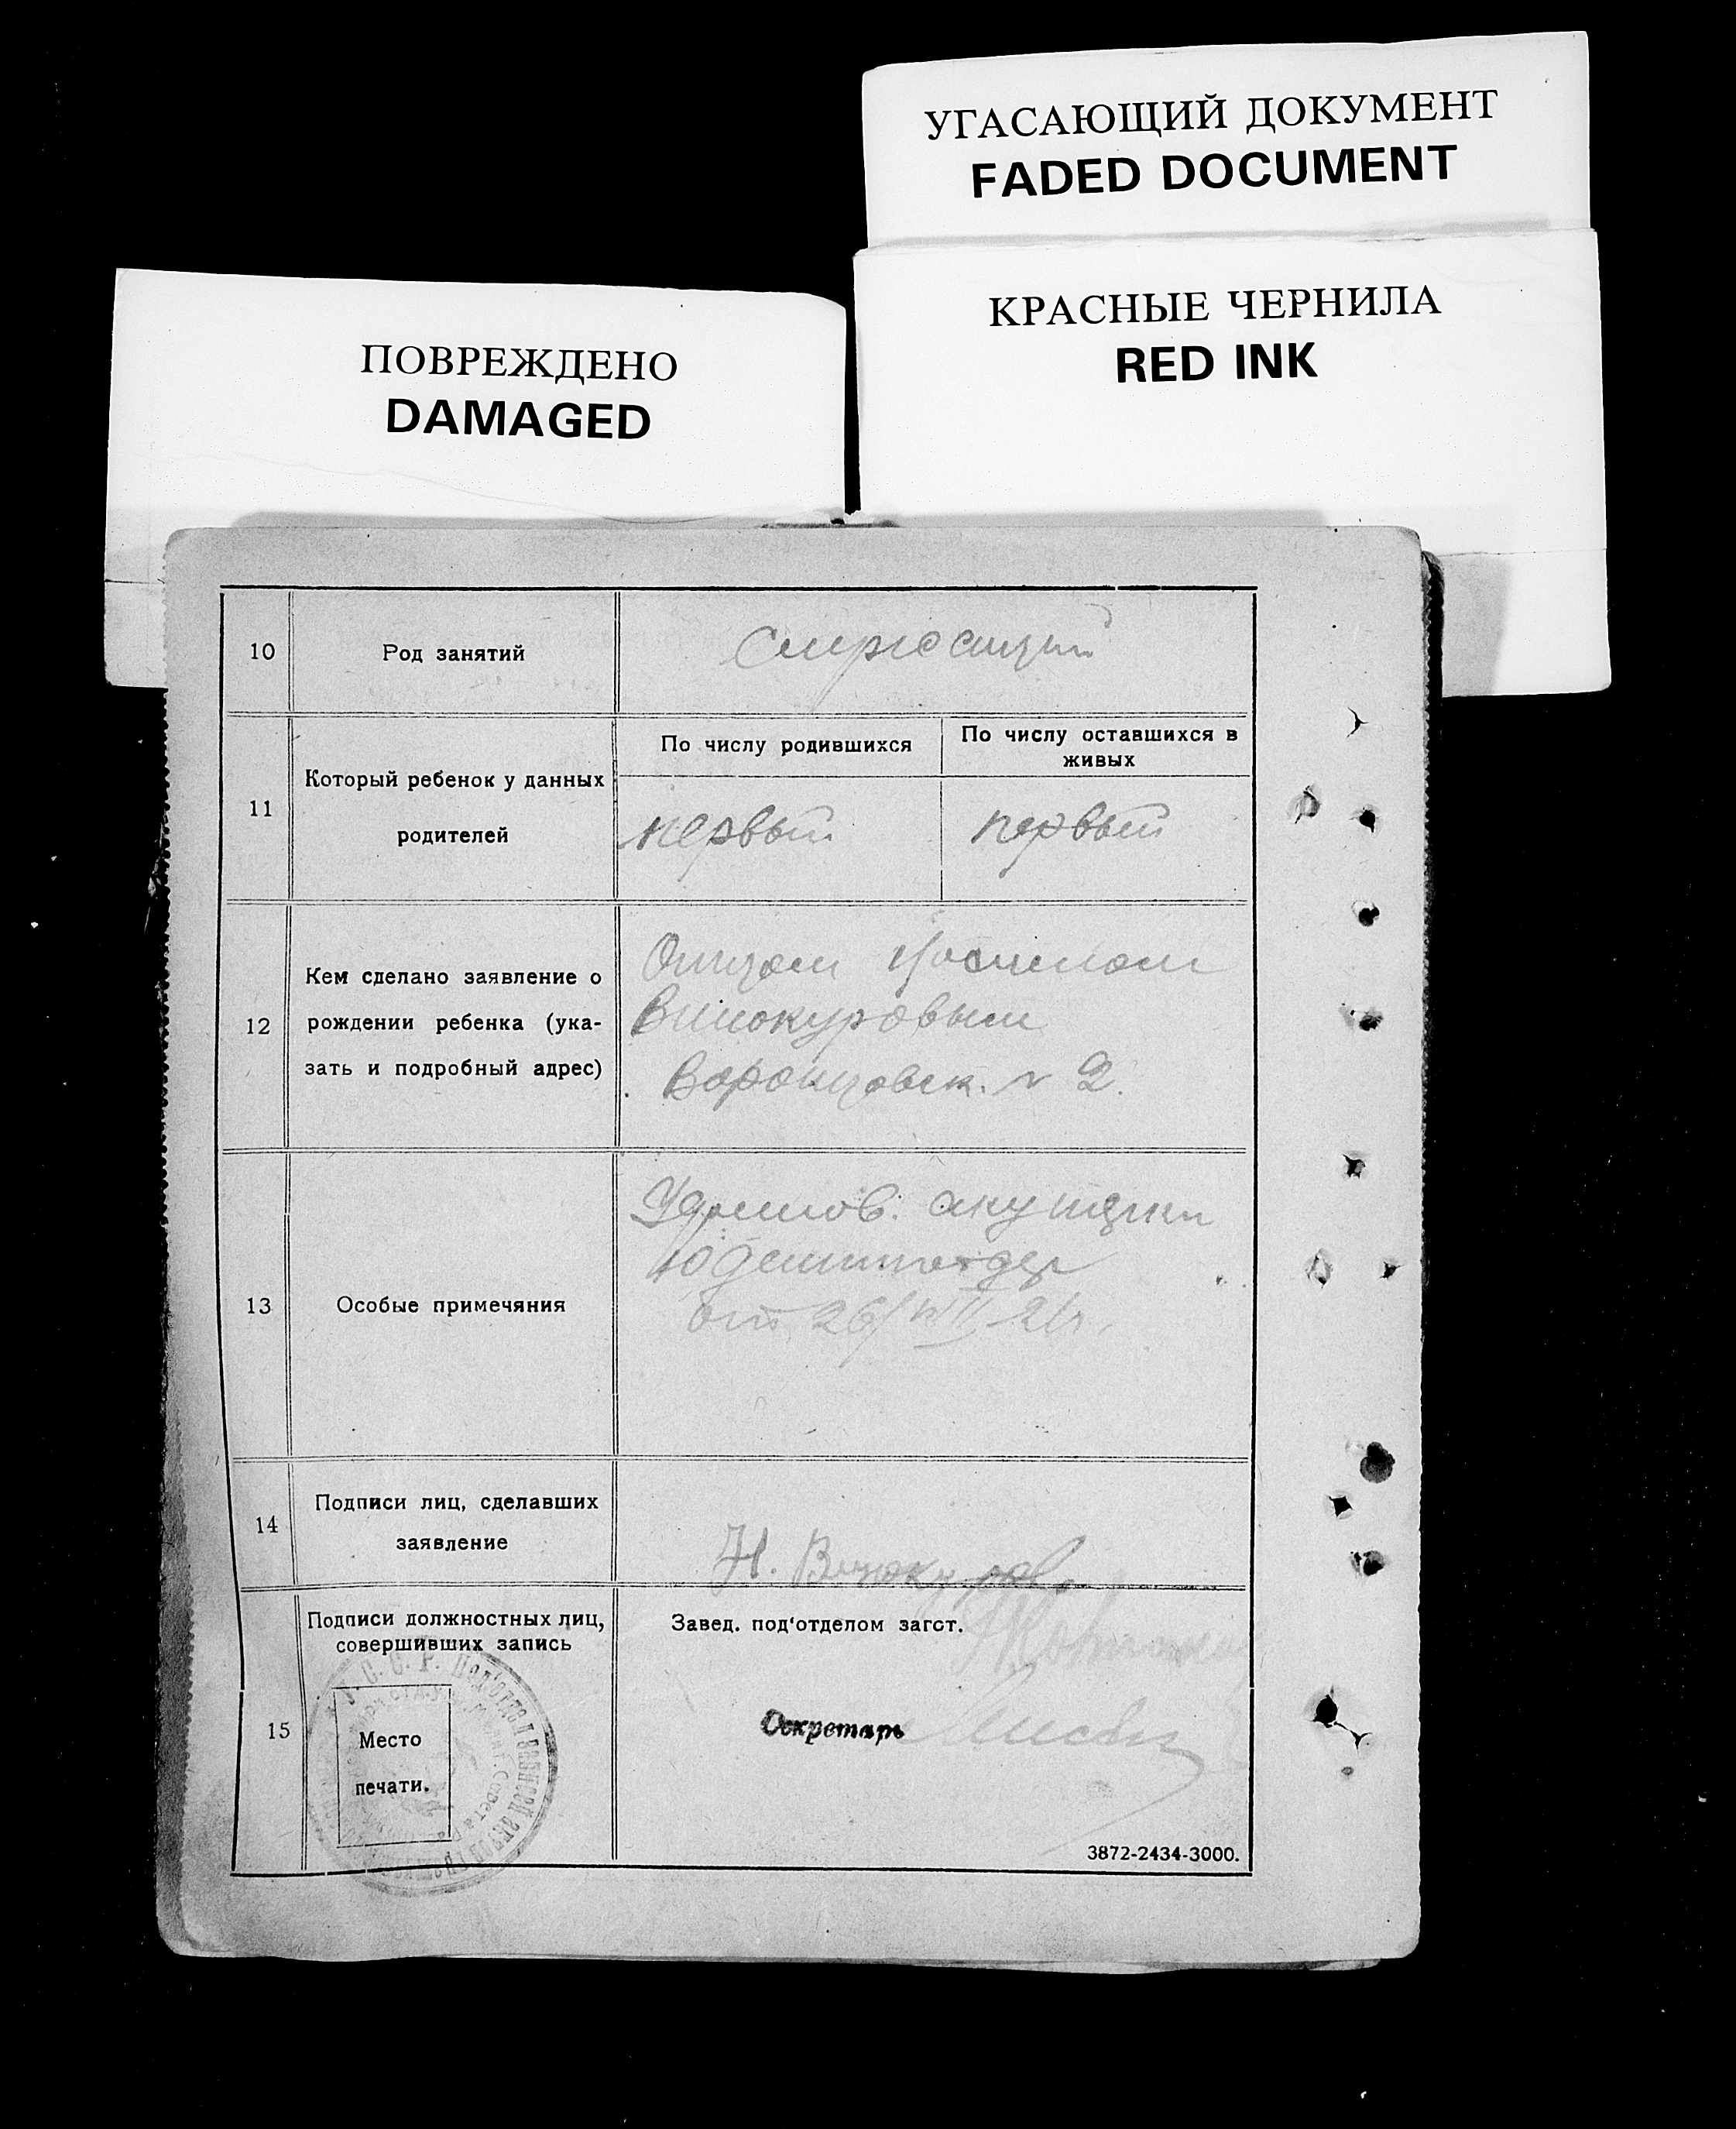 УГАСАЮЩИЙ ДОКУМЕНТ
FADED DOCUMENT
КРАСНЫЕ ЧЕРНИЛА
RED INK
ПОВРЕЖДЕНО
DAMAGED
10 Род занятий
11 Который ребенок у данных
родителей
По числу родившихся
По числу оставшихся в
живых
первый
первый
12 Кем сделано заявление о
рождении ребенка (ука-
зать и подробный адрес)
Отцом
Винокуровым
Воронцовск. № 2.
13 Особые примечяния
акушерки
от 26/VIII 21г.
14 Подписи лиц, сделавших
заявление
Н. Винокуров
15 Подписи должностных лиц,
совершивших запись
Место
печати.
Завед. под'отделом загст.
Секретарь
3872-2434-3000.